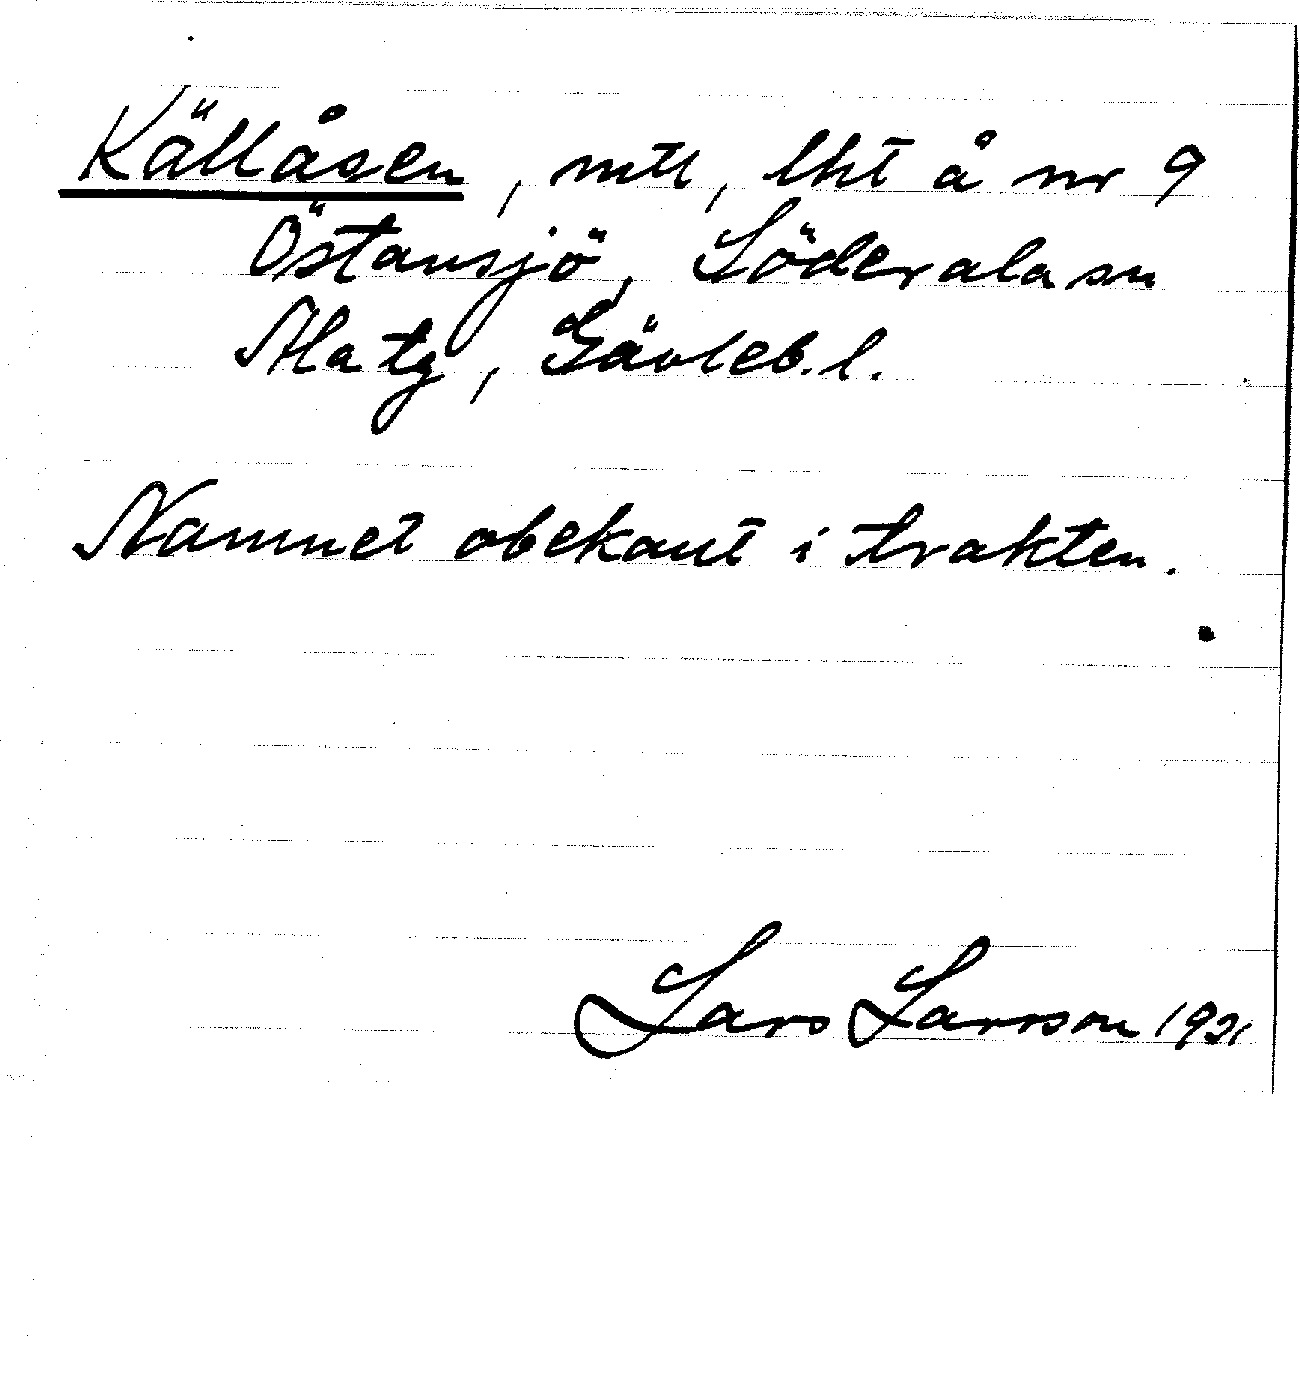 Källåsen, mtl, lht å nr 9
Östansjö, Söderala sn
Ala tg, Gävleb. l.
Namnet obekant i trakten.
Lars Larsson 1921